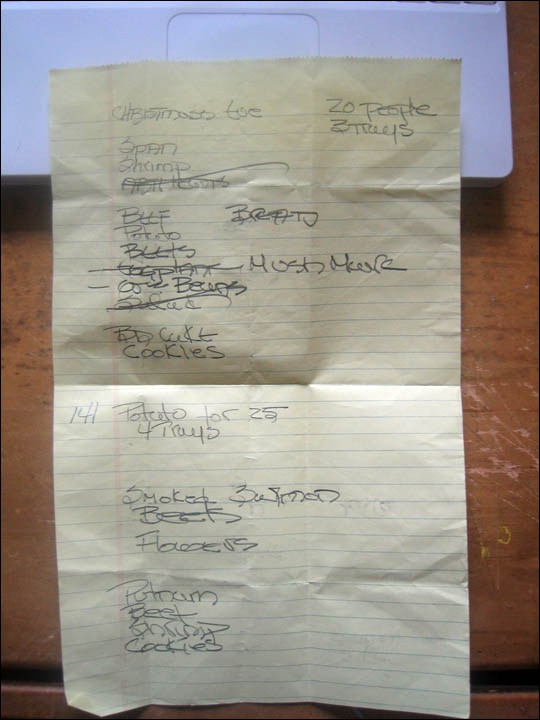 CHRISTMASS EVE 20 people
3 Trays
Span
Shrimp
BEEF BREAD
Potato
BEETS
MUSH
BEANS
Salad
CAKE
COOKIES
141 Potato for 25
4 Trays
Smoked Salmon
Beets
Flowers
Putnum
Beet
Shrimp
Cookies